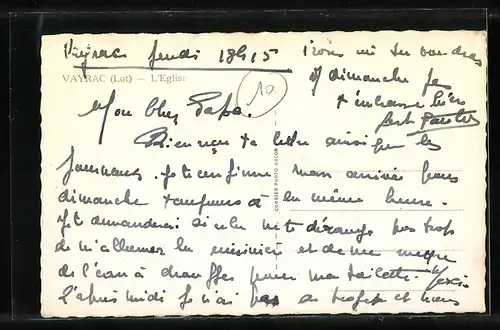 Vayrac Jeudi 18h15
VAYRAC (Lot) — L'Eglise
10
Mon Cher Papa.
Bien reçu ta lettre ainsi que les
journaux. Je te confirme mon arrivée pour
dimanche toujours à la même heure.
Je te demanderai si cela ne te dérange pas trop
de m'allumer la cuisinière et de me mettre
de l'eau à chauffer pour ma toilette. Merci
L'après midi je n'ai pas de et nous
irons si tu voudras
dimanche je
t'embrasse bien
fort
COMBIER PHOTO MACON